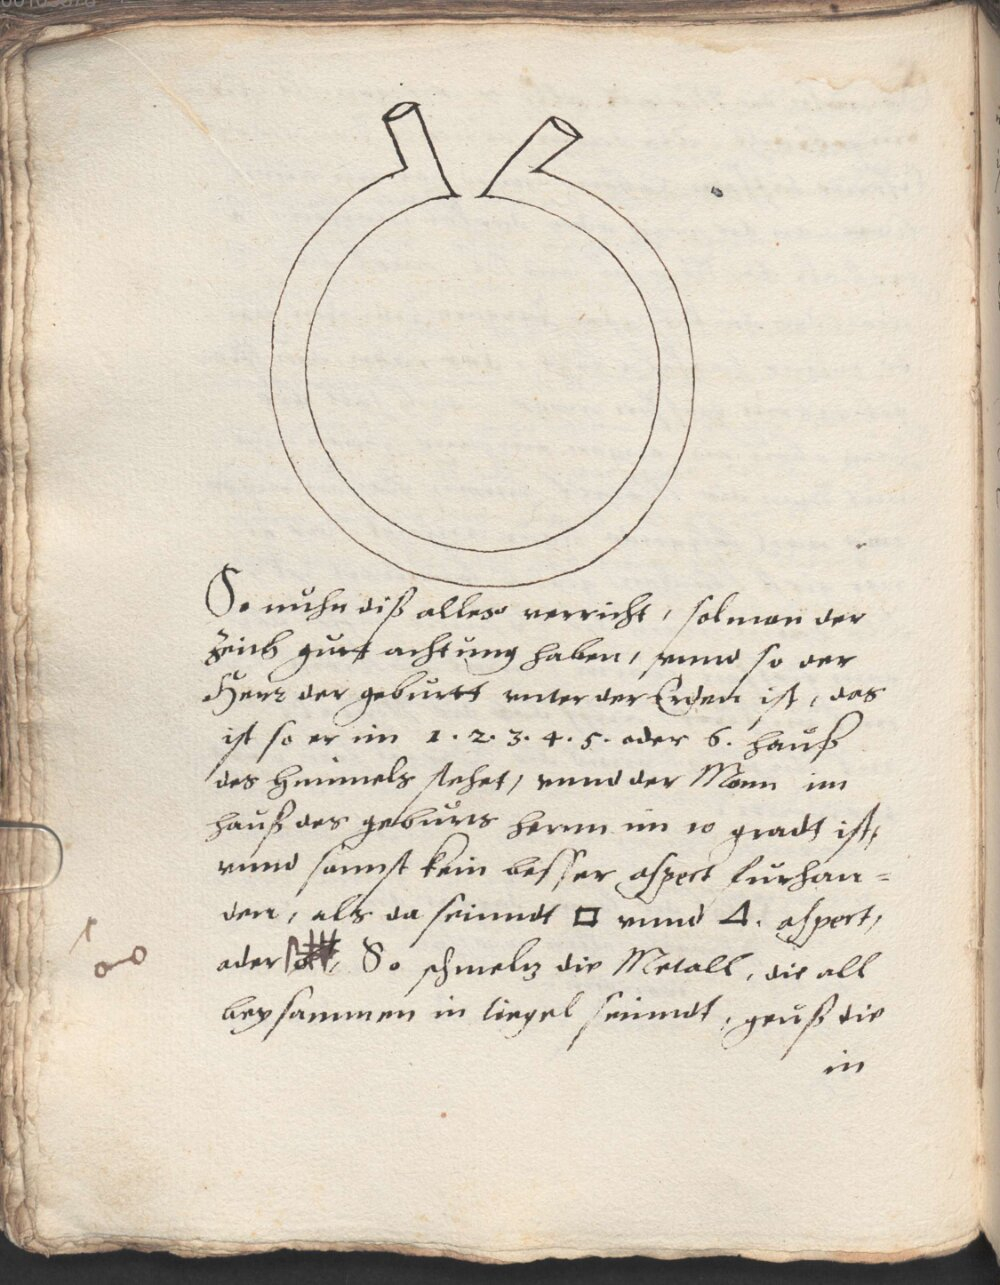 So nuhn diß alles verricht, sol man der
Zeich gutt achtung haben, vnnd so der
Herr der geburtt vnter der Erden ist, das
ist so er im 1. 2. 3. 4. 5. oder 6. hauß
des Himmels stehet, vnnd der Monn im
hauß des geburts herrn im 10 gradt ist,
vnnd sonnst kein besser aspect furhan=
den, als da seinndt □ vnnd Δ. aspect,
oder So schmeltz die Metall, die all
beysammen in tiegel seinndt, geuß die
in